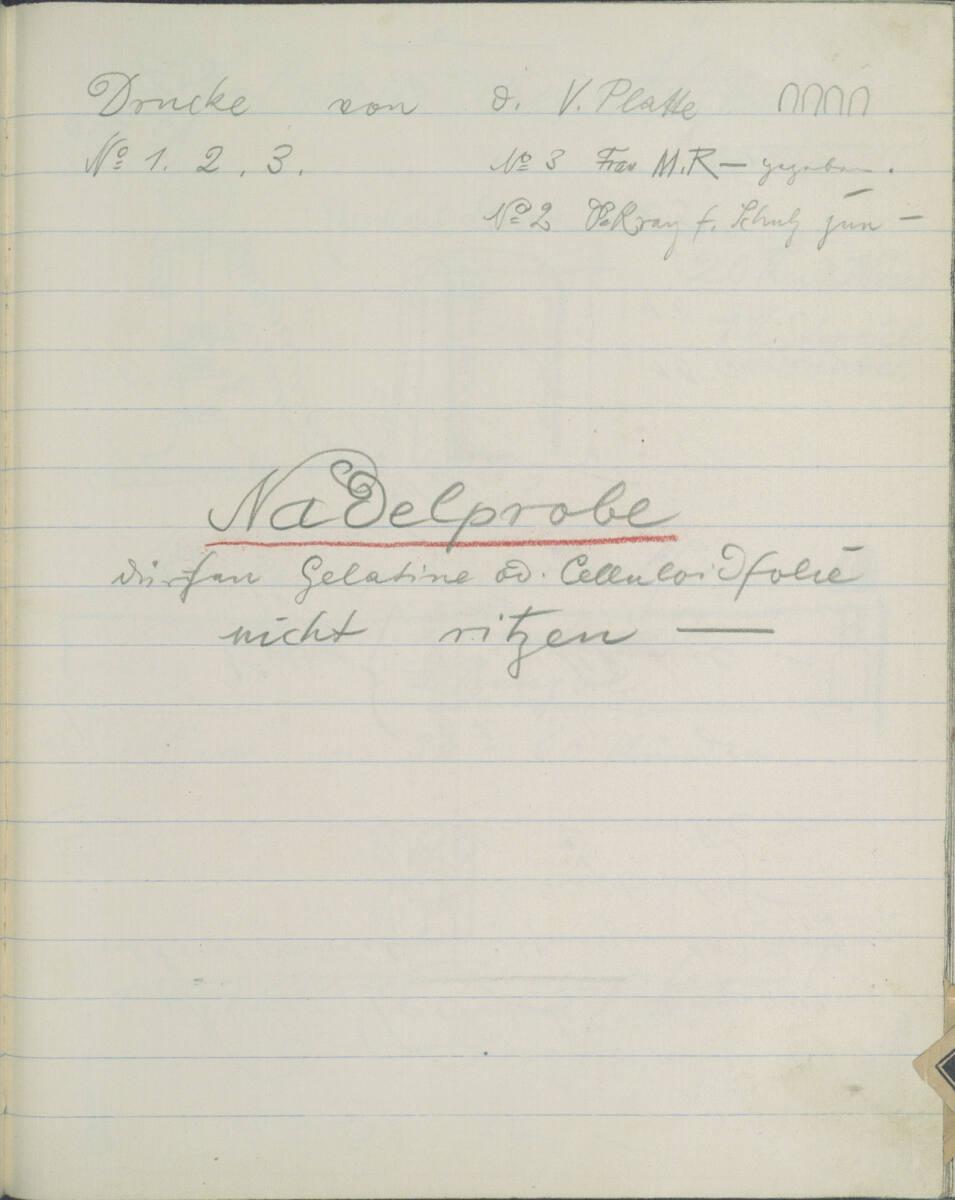 Drucke von d. V. Platte
No 1. 2. 3. No 3 Frau M.R — gegeben.
No 2 f. Schulz jun —
Nadelprobe
dürfen Gelatine od. Celluloidfolie
nicht ritzen —